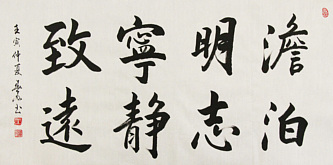 澹泊
明志
寧靜
致遠
壬寅仲夏